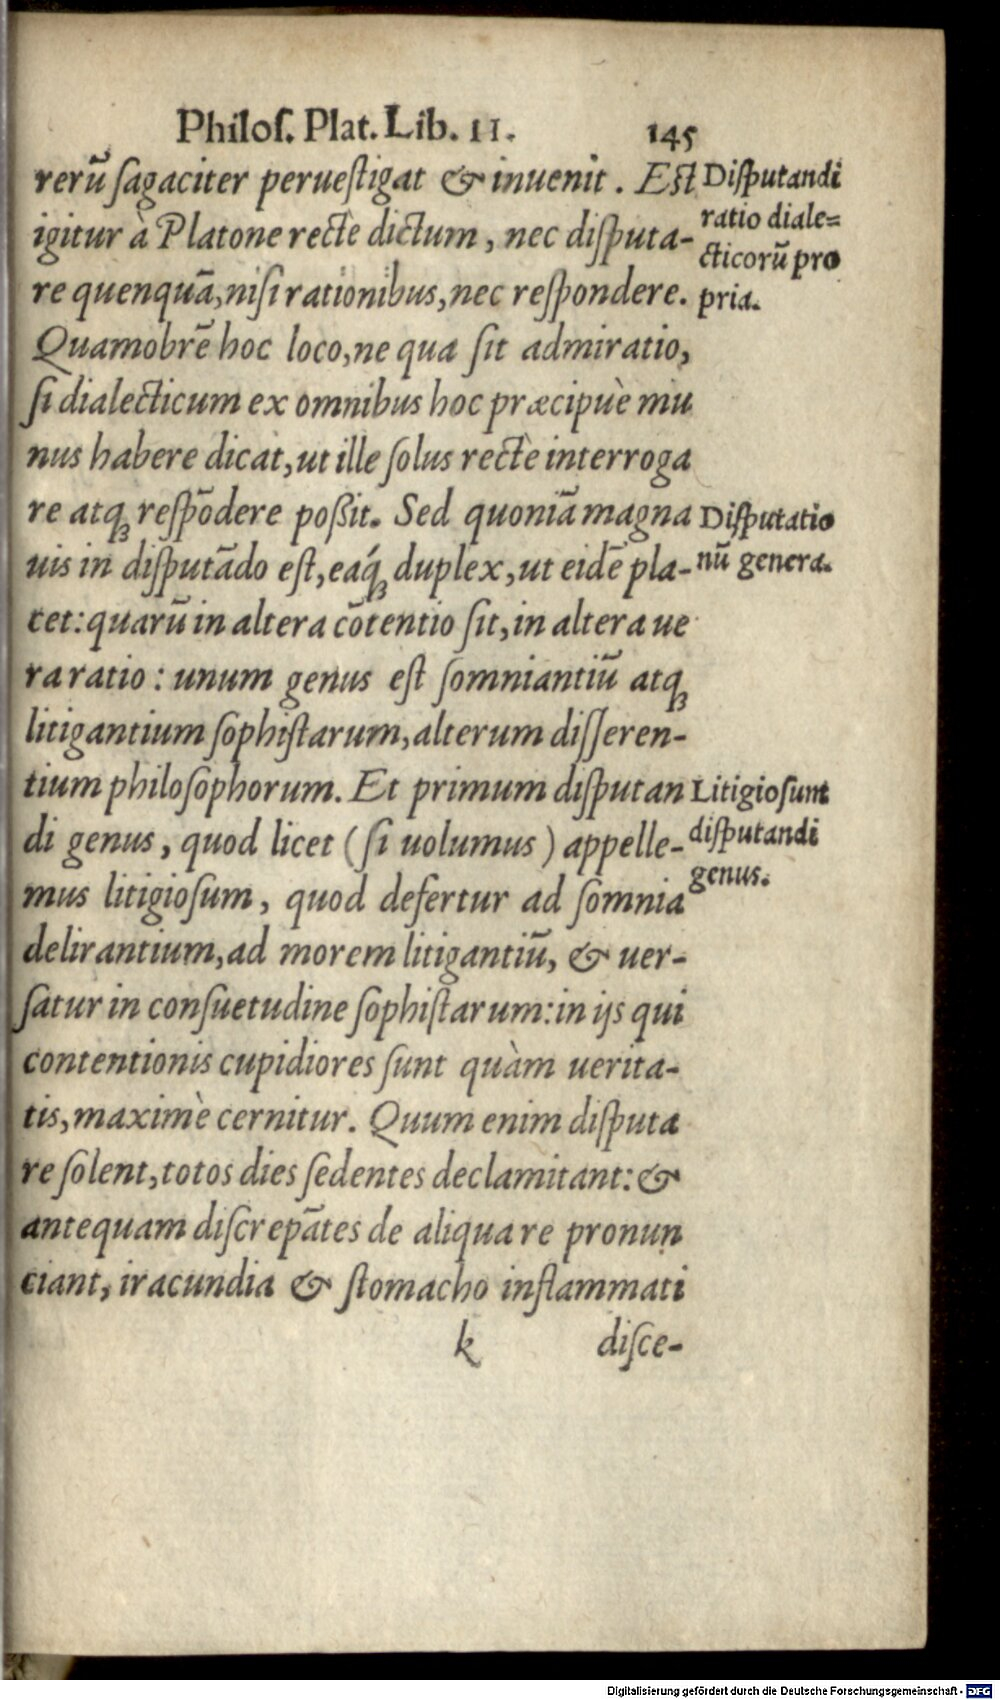 Philoſ. Plat. Lib. II. 145
rerū ſagaciter perueſtigat & inuenit. Est
igitur à Platone rectè dictum, nec diſputa-
re quenquā, niſi rationibus, nec reſpondere.
Quamobrē hoc loco, ne qua ſit admiratio,
ſi dialecticum ex omnibus hoc præcipuè mu
nus habere dicat, ut ille ſolus rectè interroga
re atqꝫ reſpōdere poßit. Sed quoniā magna
uis in diſputādo eſt, eáqꝫ duplex, ut eidē pla-
cet: quarū in altera cōtentio ſit, in altera ue
ra ratio: unum genus eſt ſomniantiū atqꝫ
litigantium ſophiſtarum, alterum diſſeren-
tium philoſophorum. Et primum diſputan
di genus, quod licet (ſi uolumus) appelle-
mus litigioſum, quod defertur ad ſomnia
delirantium, ad morem litigantiū, & uer-
ſatur in conſuetudine ſophiſtarum: in ijs qui
contentionis cupidiores ſunt quàm uerita-
tis, maximè cernitur. Quum enim diſputa
re ſolent, totos dies ſedentes declamitant: &
antequam diſcrepātes de aliqua re pronun
ciant, iracundia & ſtomacho inflammati
k diſce-
Diſputandi
ratio diale=
cticorū pro
pria.
Diſputatio
nū genera.
Litigioſunt
diſputandi
genus.
Digitalisierung gefördert durch die Deutsche Forschungsgemeinschaft - DFG